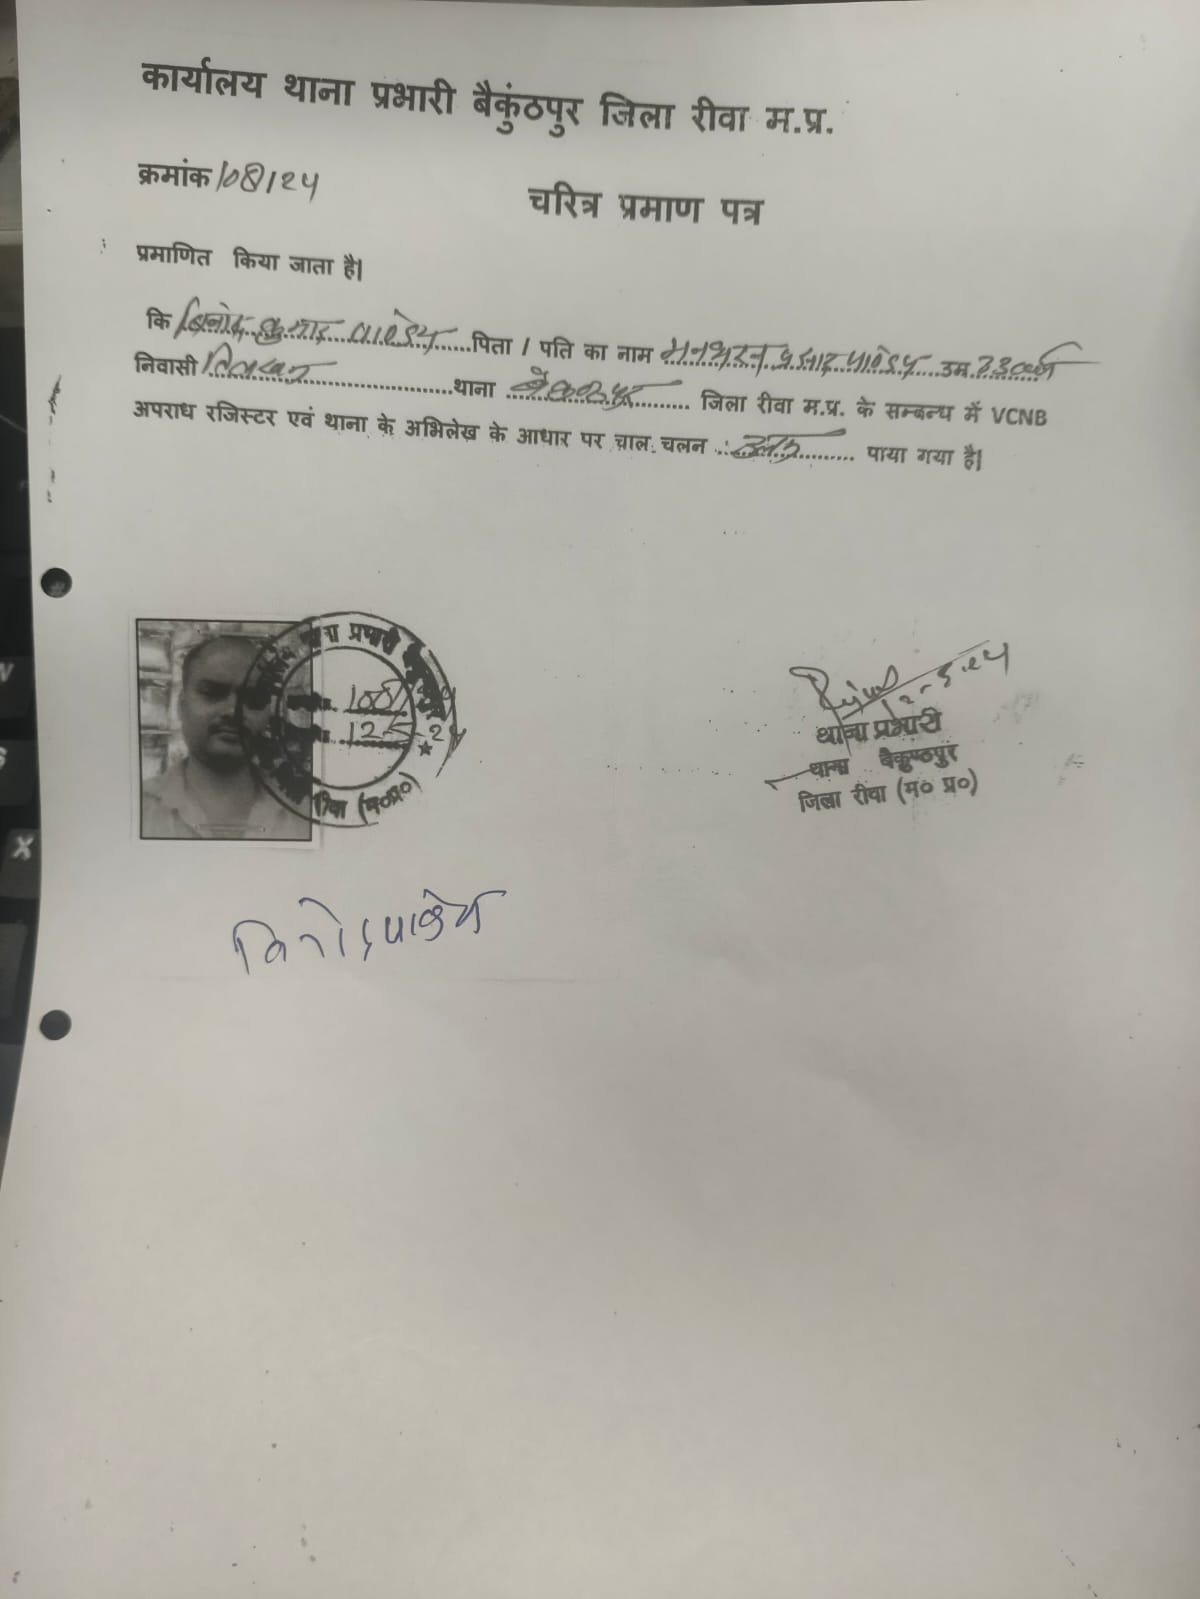 कार्यालय थाना प्रभारी बैकुंठपुर जिला रीवा म.प्र.
क्रमांक 108/24
चरित्र प्रमाण पत्र
प्रमाणित किया जाता है।
कि विनोद कुमार पाण्डेय पिता / पति का नाम प्रसाद पाण्डेय उम्र वर्ष
निवासी थाना बैकुण्ठपुर जिला रीवा म.प्र. के सम्बन्ध में VCNB
अपराध रजिस्टर एवं थाना के अभिलेख के आधार पर चाल चलन पाया गया है।
थाना प्रभारी
108/24
12-5-24
रीवा (म०प्र०)
12-5-24
थाना प्रभारी
थाना बैकुण्ठपुर
जिला रीवा (म० प्र०)
विनोद पाण्डेय
X